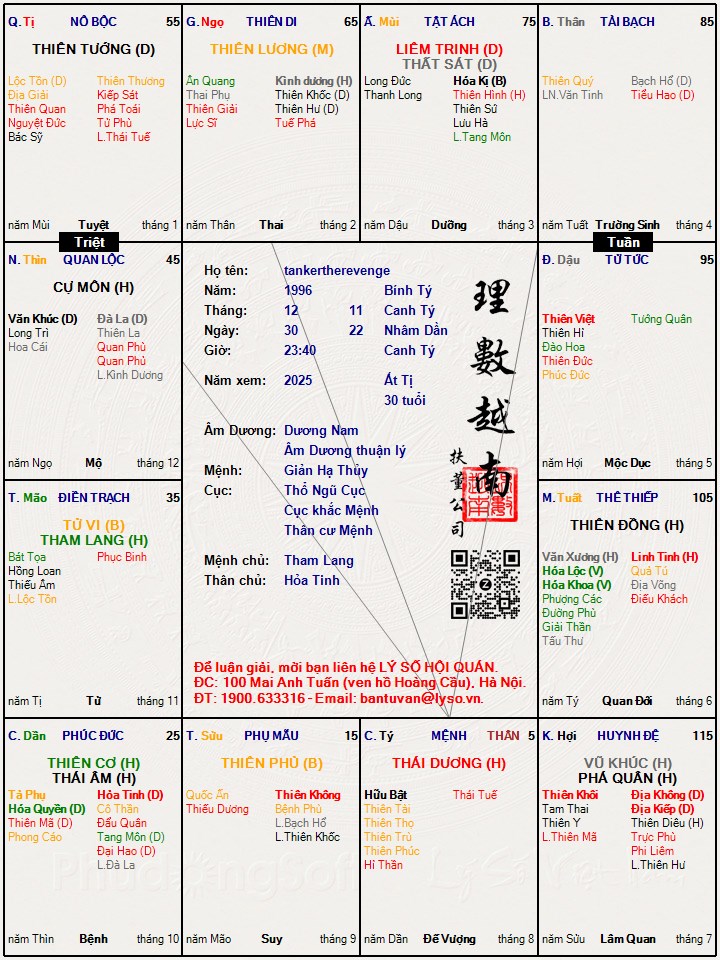 Q. Tị NÔ BỘC 55
THIÊN TƯỚNG (D)
Lộc Tồn (D) Thiên Thương
Địa Giải Kiếp Sát
Thiên Quan Phá Toái
Nguyệt Đức Tử Phù
Bác Sỹ L.Thái Tuế
năm Mùi Tuyệt tháng 1
G. Ngọ THIÊN DI 65
THIÊN LƯƠNG (M)
Ân Quang Kình dương (H)
Thai Phụ Thiên Khốc (D)
Thiên Giải Thiên Hư (D)
Lực Sĩ Tuế Phá
năm Thân Thai tháng 2
Ấ. Mùi TẬT ÁCH 75
LIÊM TRINH (D)
THẤT SÁT (D)
Long Đức Hóa Kị (B)
Thanh Long Thiên Hình (H)
Thiên Sứ
Lưu Hà
L.Tang Môn
năm Dậu Dưỡng tháng 3
B. Thân TÀI BẠCH 85
Thiên Quý Bạch Hổ (D)
LN.Văn Tinh Tiểu Hao (D)
năm Tuất Trường Sinh tháng 4
Triệt
Tuần
N. Thìn QUAN LỘC 45
CỰ MÔN (H)
Văn Khúc (D) Đà La (D)
Long Trì Thiên La
Hoa Cái Quan Phù
Quan Phủ
L.Kình Dương
năm Ngọ Mộ tháng 12
Họ tên: tankertherevenge
Năm: 1996 Bính Tý
Tháng: 12 11 Canh Tý
Ngày: 30 22 Nhâm Dần
Giờ: 23:40 Canh Tý
Năm xem: 2025 Ất Tị
30 tuổi
Âm Dương: Dương Nam
Âm Dương thuận lý
Mệnh: Giản Hạ Thủy
Cục: Thổ Ngũ Cục
Cục khắc Mệnh
Thân cư Mệnh
Mệnh chủ: Tham Lang
Thân chủ: Hỏa Tinh
理數越南
扶董公司
Để luận giải, mời bạn liên hệ LÝ SỐ HỘI QUÁN.
ĐC: 100 Mai Anh Tuấn (ven hồ Hoàng Cầu), Hà Nội.
ĐT: 1900.633316 - Email: bantuvan@lyso.vn.
Đ. Dậu TỬ TỨC 95
Thiên Việt Tướng Quân
Thiên Hỉ
Đào Hoa
Thiên Đức
Phúc Đức
năm Hợi Mộc Dục tháng 5
T. Mão ĐIỀN TRẠCH 35
TỬ VI (B)
THAM LANG (H)
Bát Tọa Phục Binh
Hồng Loan
Thiếu Âm
L.Lộc Tồn
năm Tị Tử tháng 11
M. Tuất THÊ THIẾP 105
THIÊN ĐỒNG (H)
Văn Xương (H) Linh Tinh (H)
Hóa Lộc (V) Quả Tú
Hóa Khoa (V) Địa Võng
Phượng Các Điếu Khách
Đường Phù
Giải Thần
Tấu Thư
năm Tý Quan Đới tháng 6
C. Dần PHÚC ĐỨC 25
THIÊN CƠ (H)
THÁI ÂM (H)
Tả Phụ Hỏa Tinh (D)
Hóa Quyền (D) Cô Thần
Thiên Mã (D) Đẩu Quân
Phong Cáo Tang Môn (D)
Đại Hao (D)
L.Đà La
năm Thìn Bệnh tháng 10
T. Sửu PHỤ MẪU 15
THIÊN PHỦ (B)
Quốc Ấn Thiên Không
Thiếu Dương Bệnh Phù
L.Bạch Hổ
L.Thiên Khốc
năm Mão Suy tháng 9
C. Tý MỆNH THÂN 5
THÁI DƯƠNG (H)
Hữu Bật Thái Tuế
Thiên Tài
Thiên Thọ
Thiên Trù
Thiên Phúc
Hỉ Thần
năm Dần Đế Vượng tháng 8
K. Hợi HUYNH ĐỆ 115
VŨ KHÚC (H)
PHÁ QUÂN (H)
Thiên Khôi Địa Không (D)
Tam Thai Địa Kiếp (D)
Thiên Y Thiên Diêu (H)
L.Thiên Mã Trực Phù
Phi Liêm
L.Thiên Hư
năm Sửu Lâm Quan tháng 7